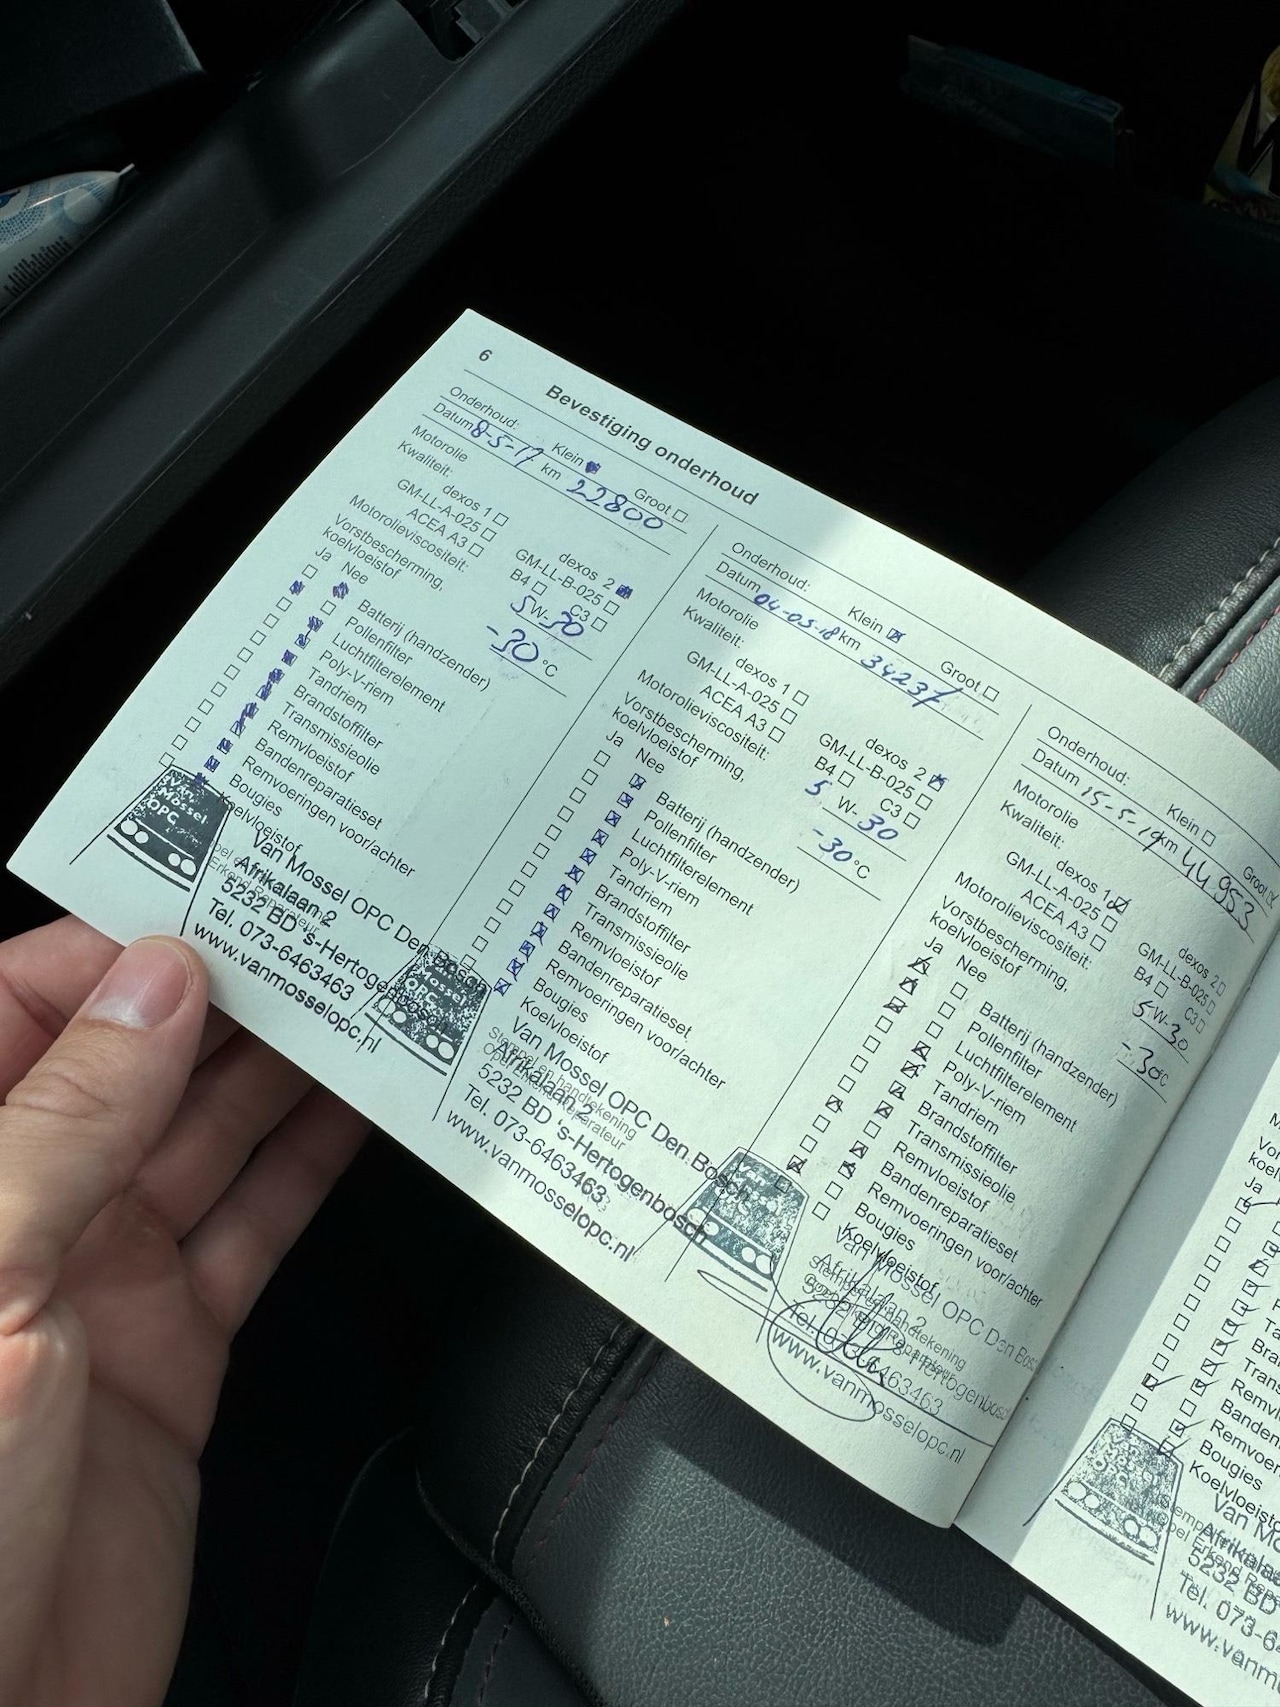 6
Bevestiging onderhoud
Onderhoud: Klein Groot
Datum 8-5-17 km 22800
Motorolie
Kwaliteit:
dexos 1 dexos 2
GM-LL-A-025 GM-LL-B-025
ACEA A3 B4 C3
Motorolieviscositeit: 5W-30
Vorstbescherming,
koelvloeistof -30 °C
Ja Nee
Batterij (handzender)
Pollenfilter
Luchtfilterelement
Poly-V-riem
Tandriem
Brandstoffilter
Transmissieolie
Remvloeistof
Bandenreparatieset
Remvoeringen voor/achter
Bougies
Koelvloeistof
Van Mossel OPC
Van Mossel OPC Den Bosch
Afrikalaan 2
5232 BD 's-Hertogenbosch
Tel. 073-6463463
www.vanmosselopc.nl
Onderhoud: Klein Groot
Datum 04-05-18 km 34237
Motorolie
Kwaliteit:
dexos 1 dexos 2
GM-LL-A-025 GM-LL-B-025
ACEA A3 B4 C3
Motorolieviscositeit: 5 W-30
Vorstbescherming,
koelvloeistof -30 °C
Ja Nee
Batterij (handzender)
Pollenfilter
Luchtfilterelement
Poly-V-riem
Tandriem
Brandstoffilter
Transmissieolie
Remvloeistof
Bandenreparatieset
Remvoeringen voor/achter
Bougies
Koelvloeistof
Stempel en handtekening
Van Mossel OPC
Van Mossel OPC Den Bosch
Afrikalaan 2
5232 BD 's-Hertogenbosch
Tel. 073-6463463
www.vanmosselopc.nl
Onderhoud: Klein Groot
Datum 15-5-19 km 44953
Motorolie
Kwaliteit:
dexos 1 dexos 2
GM-LL-A-025 GM-LL-B-025
ACEA A3 B4 C3
Motorolieviscositeit: 5W-30
Vorstbescherming,
koelvloeistof -30°C
Ja Nee
Batterij (handzender)
Pollenfilter
Luchtfilterelement
Poly-V-riem
Tandriem
Brandstoffilter
Transmissieolie
Remvloeistof
Bandenreparatieset
Remvoeringen voor/achter
Bougies
Koelvloeistof
Stempel en handtekening
Van Mossel OPC Den Bosch
Afrikalaan 2
5232 BD 's-Hertogenbosch
Tel. 073-6463463
www.vanmosselopc.nl
Ja
Bougies
5232 BD
Tel. 073-6
www.vanmo